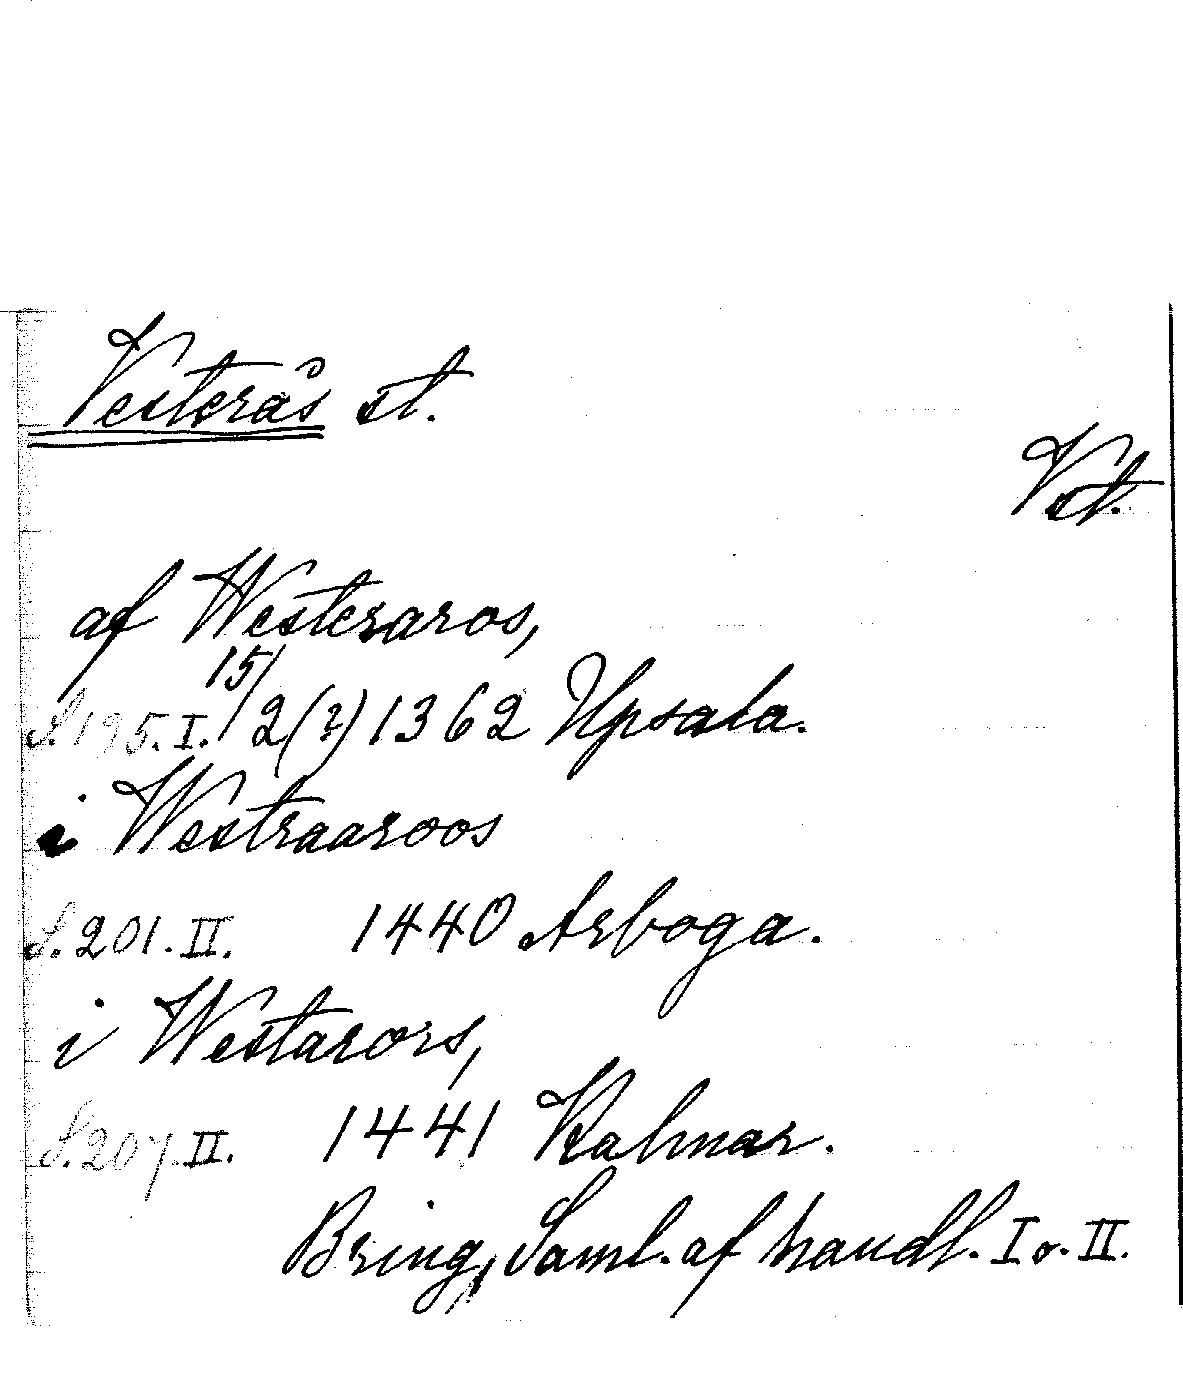 Vesterås st.
Vst.
af Westeraros,
S. 195. I. 15/2 (?) 1362 Upsala.
i Westraaroos
S. 201. II. 1440 Arboga.
i Westarors,
S. 207. II. 1441 Kalmar.
Bring, Saml. af handl. I o. II.